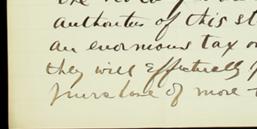 authorities of this st
an enormous tax o
they will effectually
purchase of more t